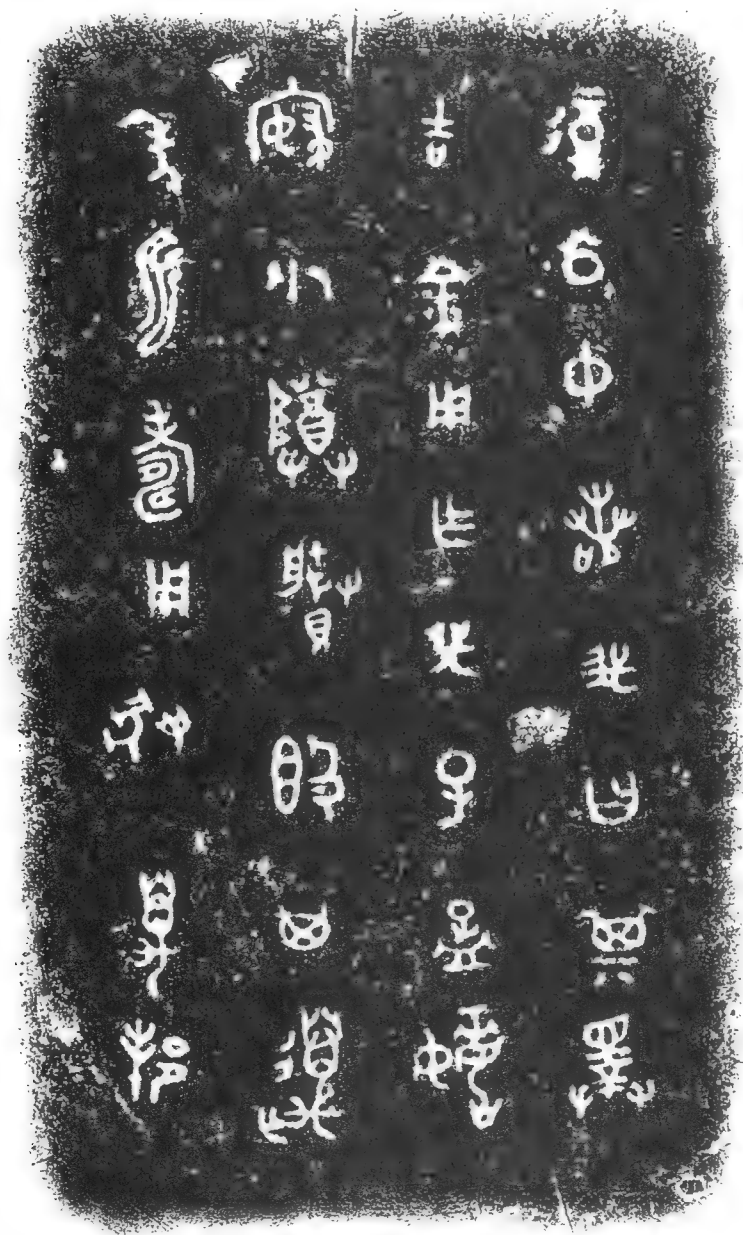 復公中若我曰其擇
吉金用乍我子孟媿
寢小尊媵𣪘其萬
年永壽用狃萬邦